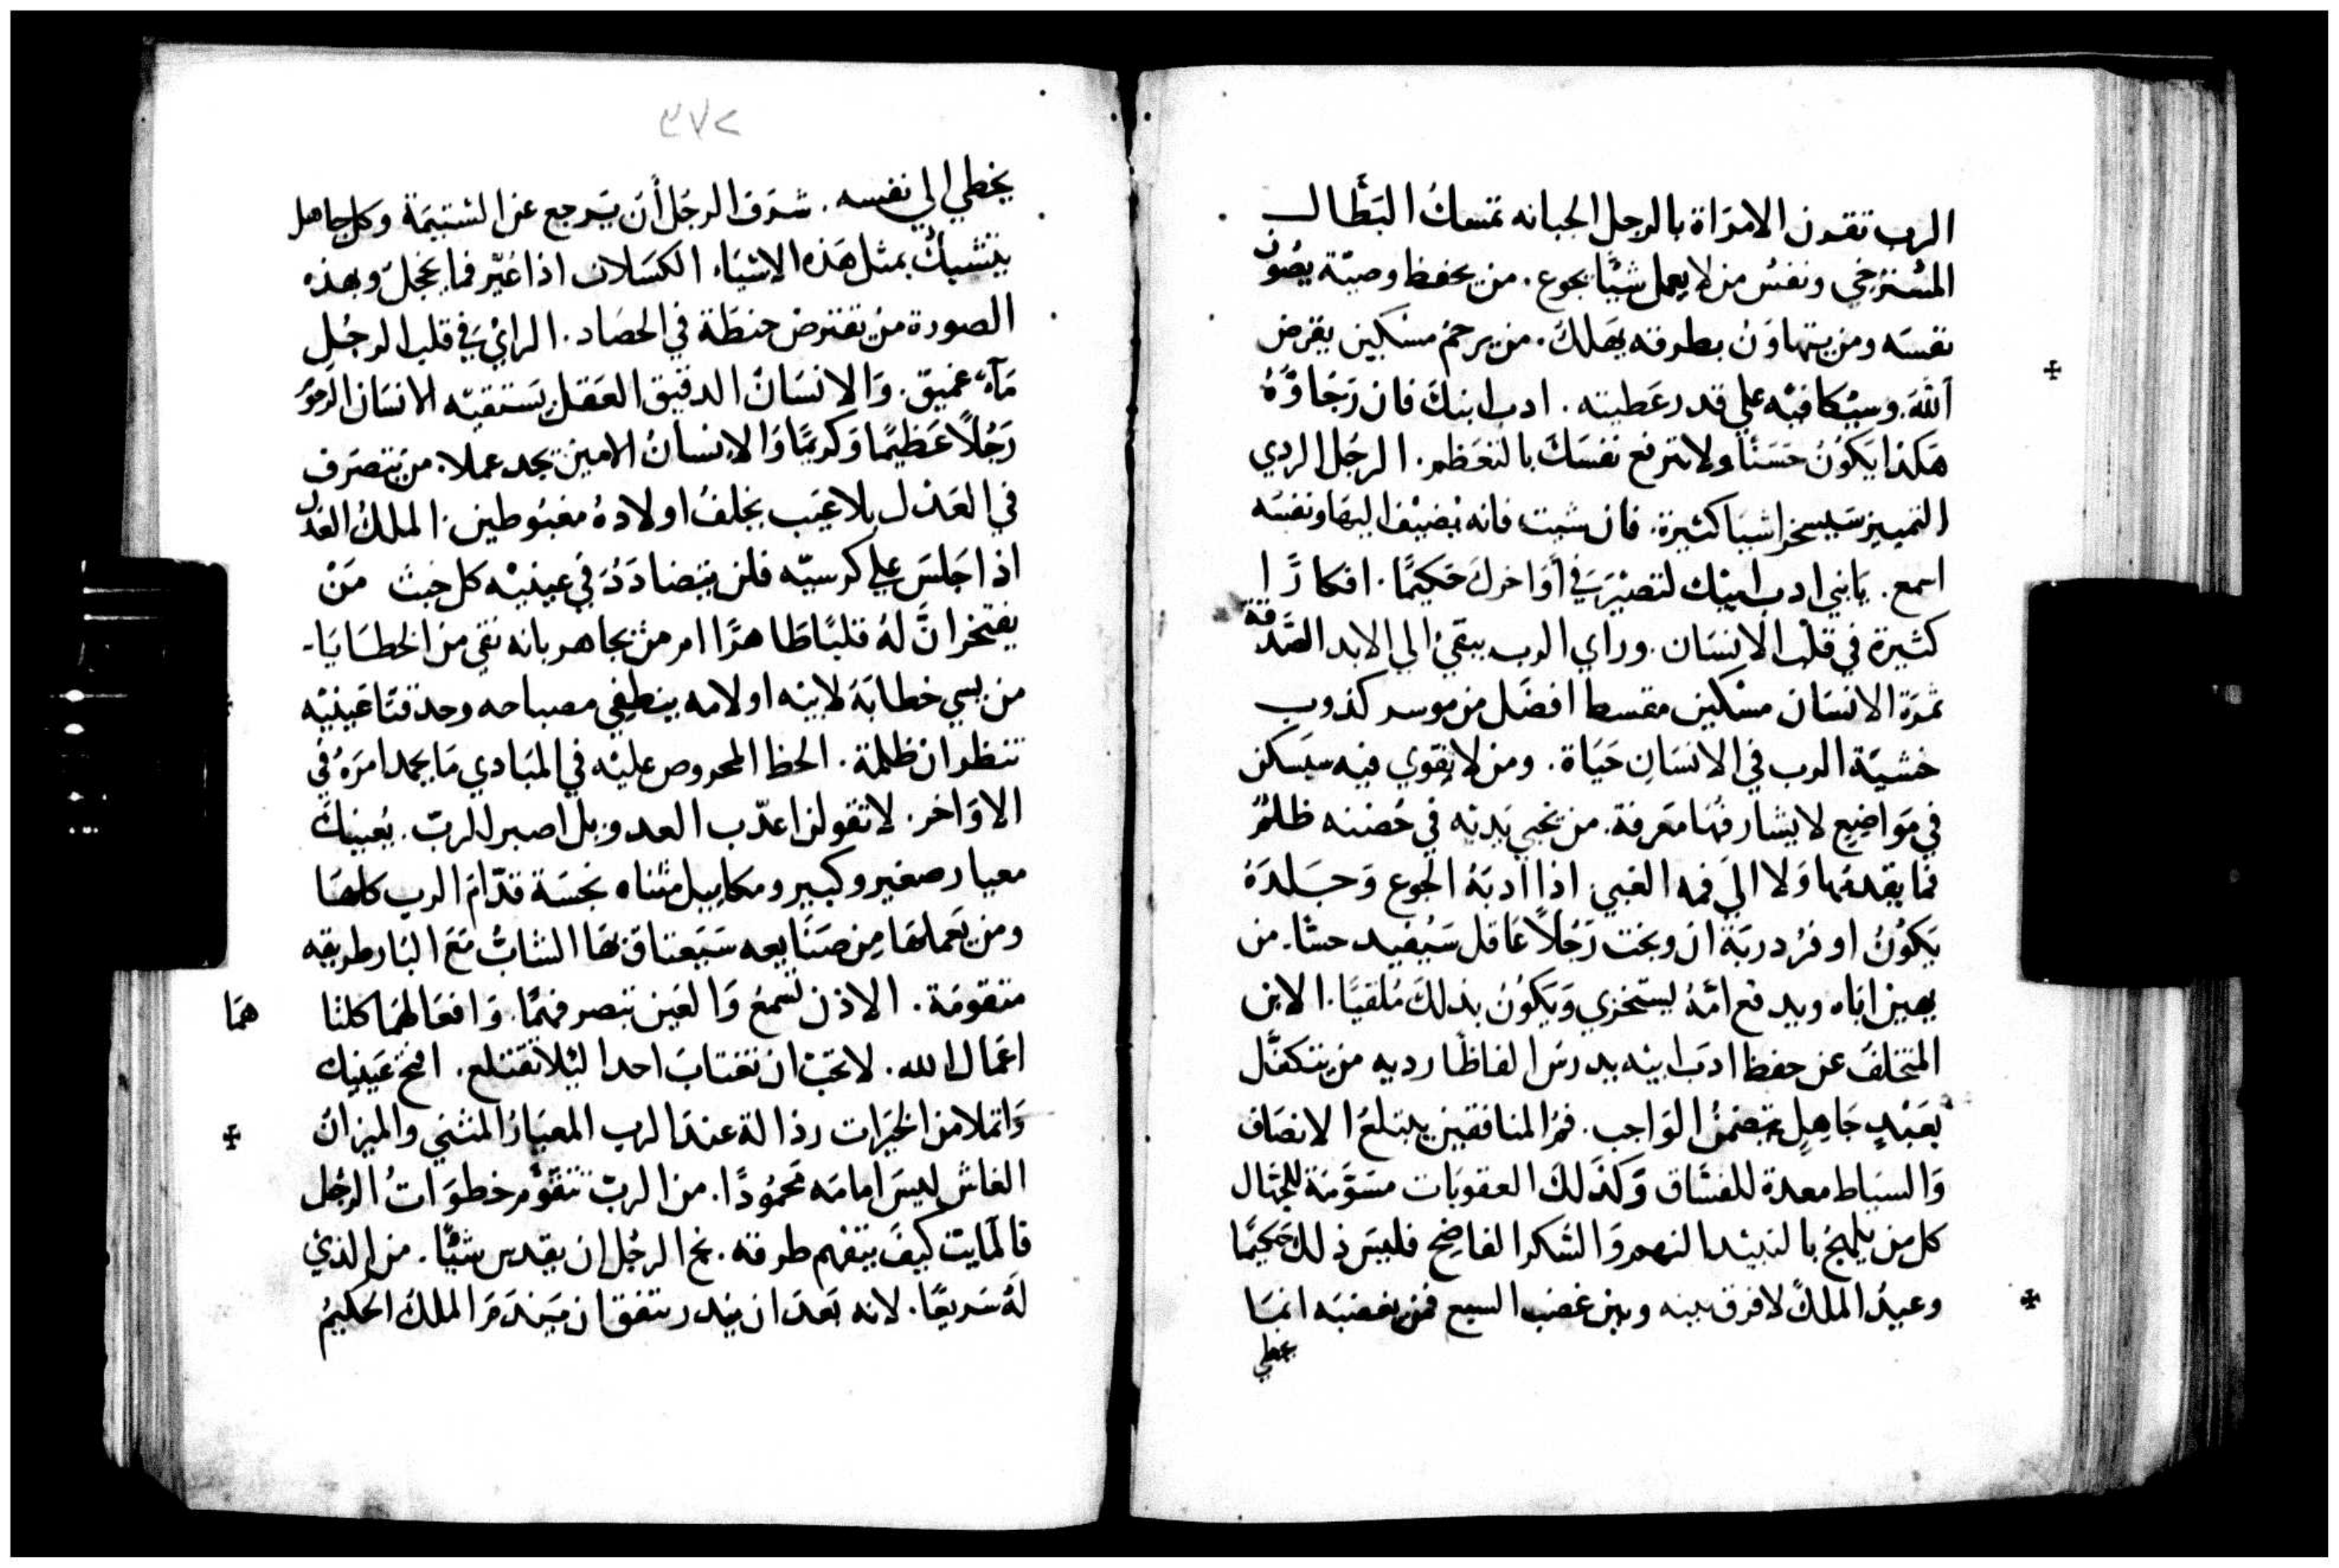 الرب تقرن الامرَاة بالرجل الجبانه تمسكُ البَطَّال
المُسْترخي ونفسُ من لا يعمل شيًا يجوع. من يحفظ وصيّة يصُون
نفسَه ومن يتهاوَنُ بطرقه يهَلكُ. من يرحمُ مسْكين يقرض
اللهَ. وسيُكافيْه علي قدر عَطيته. ادب ابنكَ فان رَجَاوَّهُ
هَكذا يَكوُنُ حَسَنًا ولا ترفع نفسَكَ بالتعَظم. الرجُل الردي
التمييز سَيسخر اشيا كثيرة. فان شيت فانه يُضيْف اليهَا ونفسَه
اسمع. يَابني ادب ابيْك لتصيْرَ في أوَاخركَ حَكيمًا. افكارًا
كثيرة في قلْب الانسَان. وراي الرب يبقيُ الي الابد الصَّدقة
ثمَرَة الانسَان مسْكين مقسط افضَل من موسر كذوب
خشيَة الرب في الانسَانِ حَيَاة. ومن لا يقوي فيه سيَسكن
في مَوَاضِيع لا يشارفهَا مَعرفة. من يخبي يَديْه في حُضنه ظلمٌ
فما يقدمهَا وَلا الىَ فمه الغبي اذا ادبَهُ الجوع وَجَلدَهُ
يَكوُنُ اوفرُ دربَة ان وبخت رَجُلاً عَاقل سَيُفيد حسًّا. من
يهين ابَاه ويدفع امّهُ ليستخزي وَيَكوُنُ بذلكَ مُلقيًا. الابن
المتخلفُ عن حفظ ادَبَ ابيْه يدرسَ الفاظًا رديه من يتكفَّل
بعَبْدٍ جَاهِلٍ يَتضمنُ الوَاجب. فمُ المنافقين يبتلعَ الانصَاف
وَالسيَاط معدة للفسَّاق وَكذَلكَ العقوبَات مسَوَّمَة للجهَّال
كل من يلهجُ بالنبيْد النهمر وَالسُكر الفاضح فليسَ ذلكَ حَكيمًا
وعيدُ الملكَ لا فرق بينه وبين غضب السبع فمن يغضبَه انمَا
يخطي
٢٧٣
يخطي الي نفسه. شرَف الرجُل أن يَرجع عن الشتيمَة وكل جاهل
يتشبكُ بمثل هَذه الاشيَاء الكسَلان اذا عُيّر فما يخجلُ وبهذه
الصورة منْ يقترض حنطَة في الحصَاد. الرايُ في قلب الرجُلِ
مَآءٌ عَميق. وَالانسَانُ الدقيق العَقل يَستقيْه الانسَان الرحوُم
رَجُلاً عَظيمًا وَكريمًا وَالانسانُ الامين يجد عملا. من يَتصَرف
في العَدْل بلا عَيب يخلفُ اولادهُ مغبُوطين. الملكُ العَدلُ
اذا جَلسَ علي كرسيّه فلن يتضادَدُ في عينيْه كل خبث مَنْ
يفتخر انَّ لهُ قلبًا طَاهرًا ام منْ يجاهر بانه نقي من الخطَايَا.
من يسي خطابَهُ لابيْه او لامه ينطفي مصباحه وحدقتَا عَينيْه
تنظران ظلمة. الحظ المحروص عليْه في المَبَادي مَا يحمد امرَهُ في
الاوَاخر. لا تقولن اعذّب العدو بل اصبر للربّ. يُعينكَ
معيار صغير وكبير ومكاييل مثناه نجسَة قدّامَ الرب كلهَا
ومن يَعملهَا مِن صَنَايعه سَيَعتاق بهَا الشابُّ مَعَ البَار طريقه
متقومَة. الاذن تسْمعَ وَالعَين تبصر فهمًا. وَافعَالهمَا كلتا هما
اعمَال الله. لا تحَبّ ان تغتابَ احدا ليْلا تقتلع. افتح عَينيك
وَاتملا من الخيَرات رذالة عندَ الرب المعيَارُ المثني والميزانُ
الغاش ليسَ امامَه مَحمُودًا. من الربّ تتقوَّم خطوَاتُ الرجُل
فالمايت كيفَ يتفهم طرقه. فخ الرجُل ان يقدس شيْئًا. من الذيْ
لهُ سَريعًا. لانه بَعدَ ان ينذر يتفق ان يَندَمَ الملكُ الحكيمُ